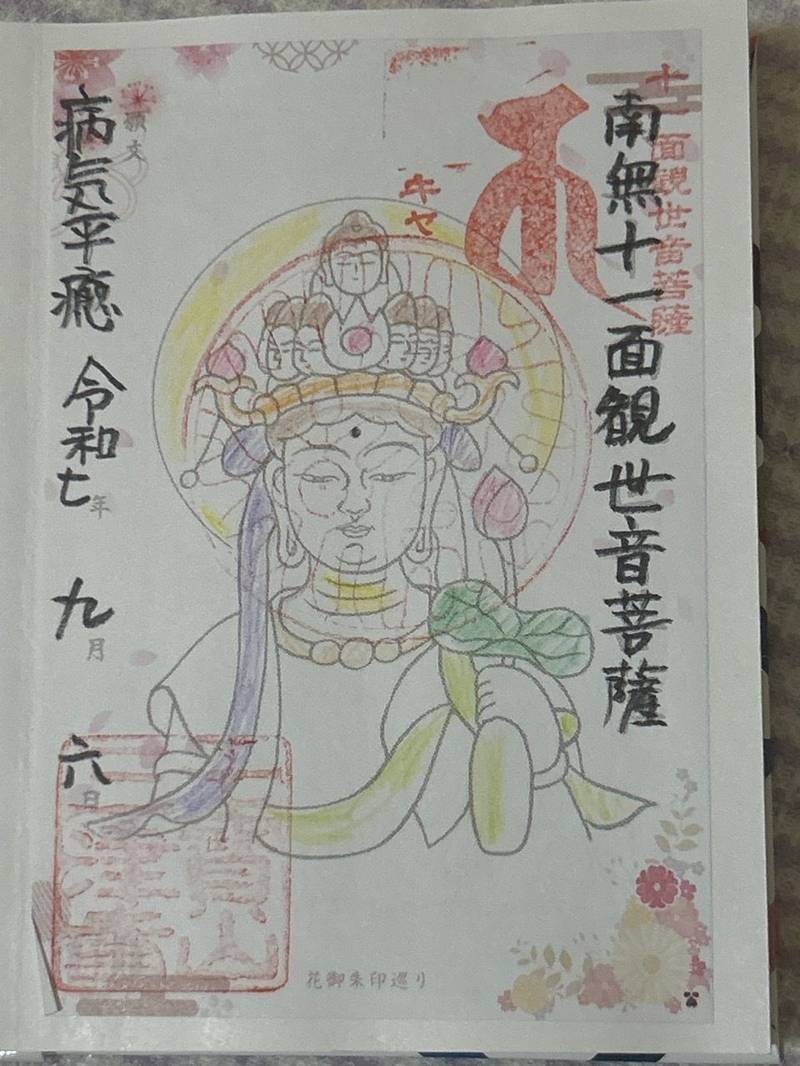 十一面観世音菩薩
南無十一面観世音菩薩
キャ
願文
病気平癒 令和七年 九月 六日
花御朱印巡り